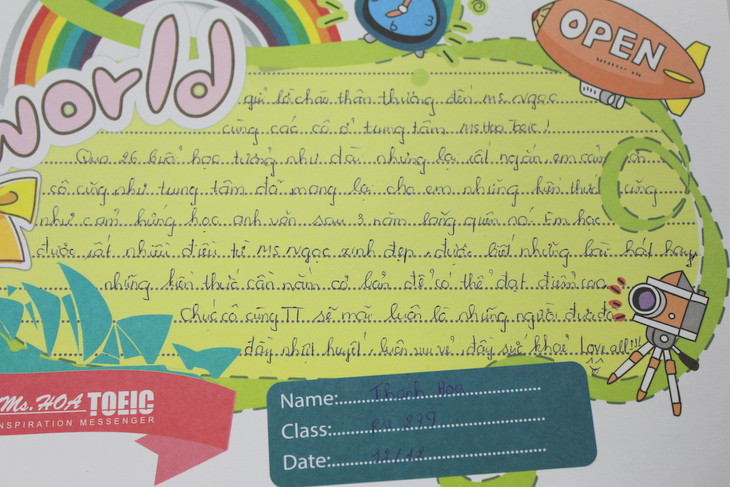 world
OPEN
gửi lời chào thân thương đến Ms. Ngọc
cùng các cô ở trung tâm Ms Hoa Toeic!
Qua 26 buổi học tưởng như dài nhưng lại rất ngắn, em cảm ơn
cô cũng như trung tâm đã mang lại cho em những kiến thức cũng
như cảm hứng học anh văn sau 3 năm lãng quên nó. Em học
được rất nhiều điều từ Ms. Ngọc xinh đẹp, được biết những bài hát hay,
những kiến thức cần nắm cơ bản để có thể đạt điểm cao
Chúc cô cùng TT sẽ mãi luôn là những người đưa đò
đầy nhiệt huyết, luôn vui vẻ, đầy sức khoẻ. Love all!!!
Ms. HOA TOEIC
INSPIRATION MESSENGER
Name: Thanh Hoa
Class: 
Date: 12/12